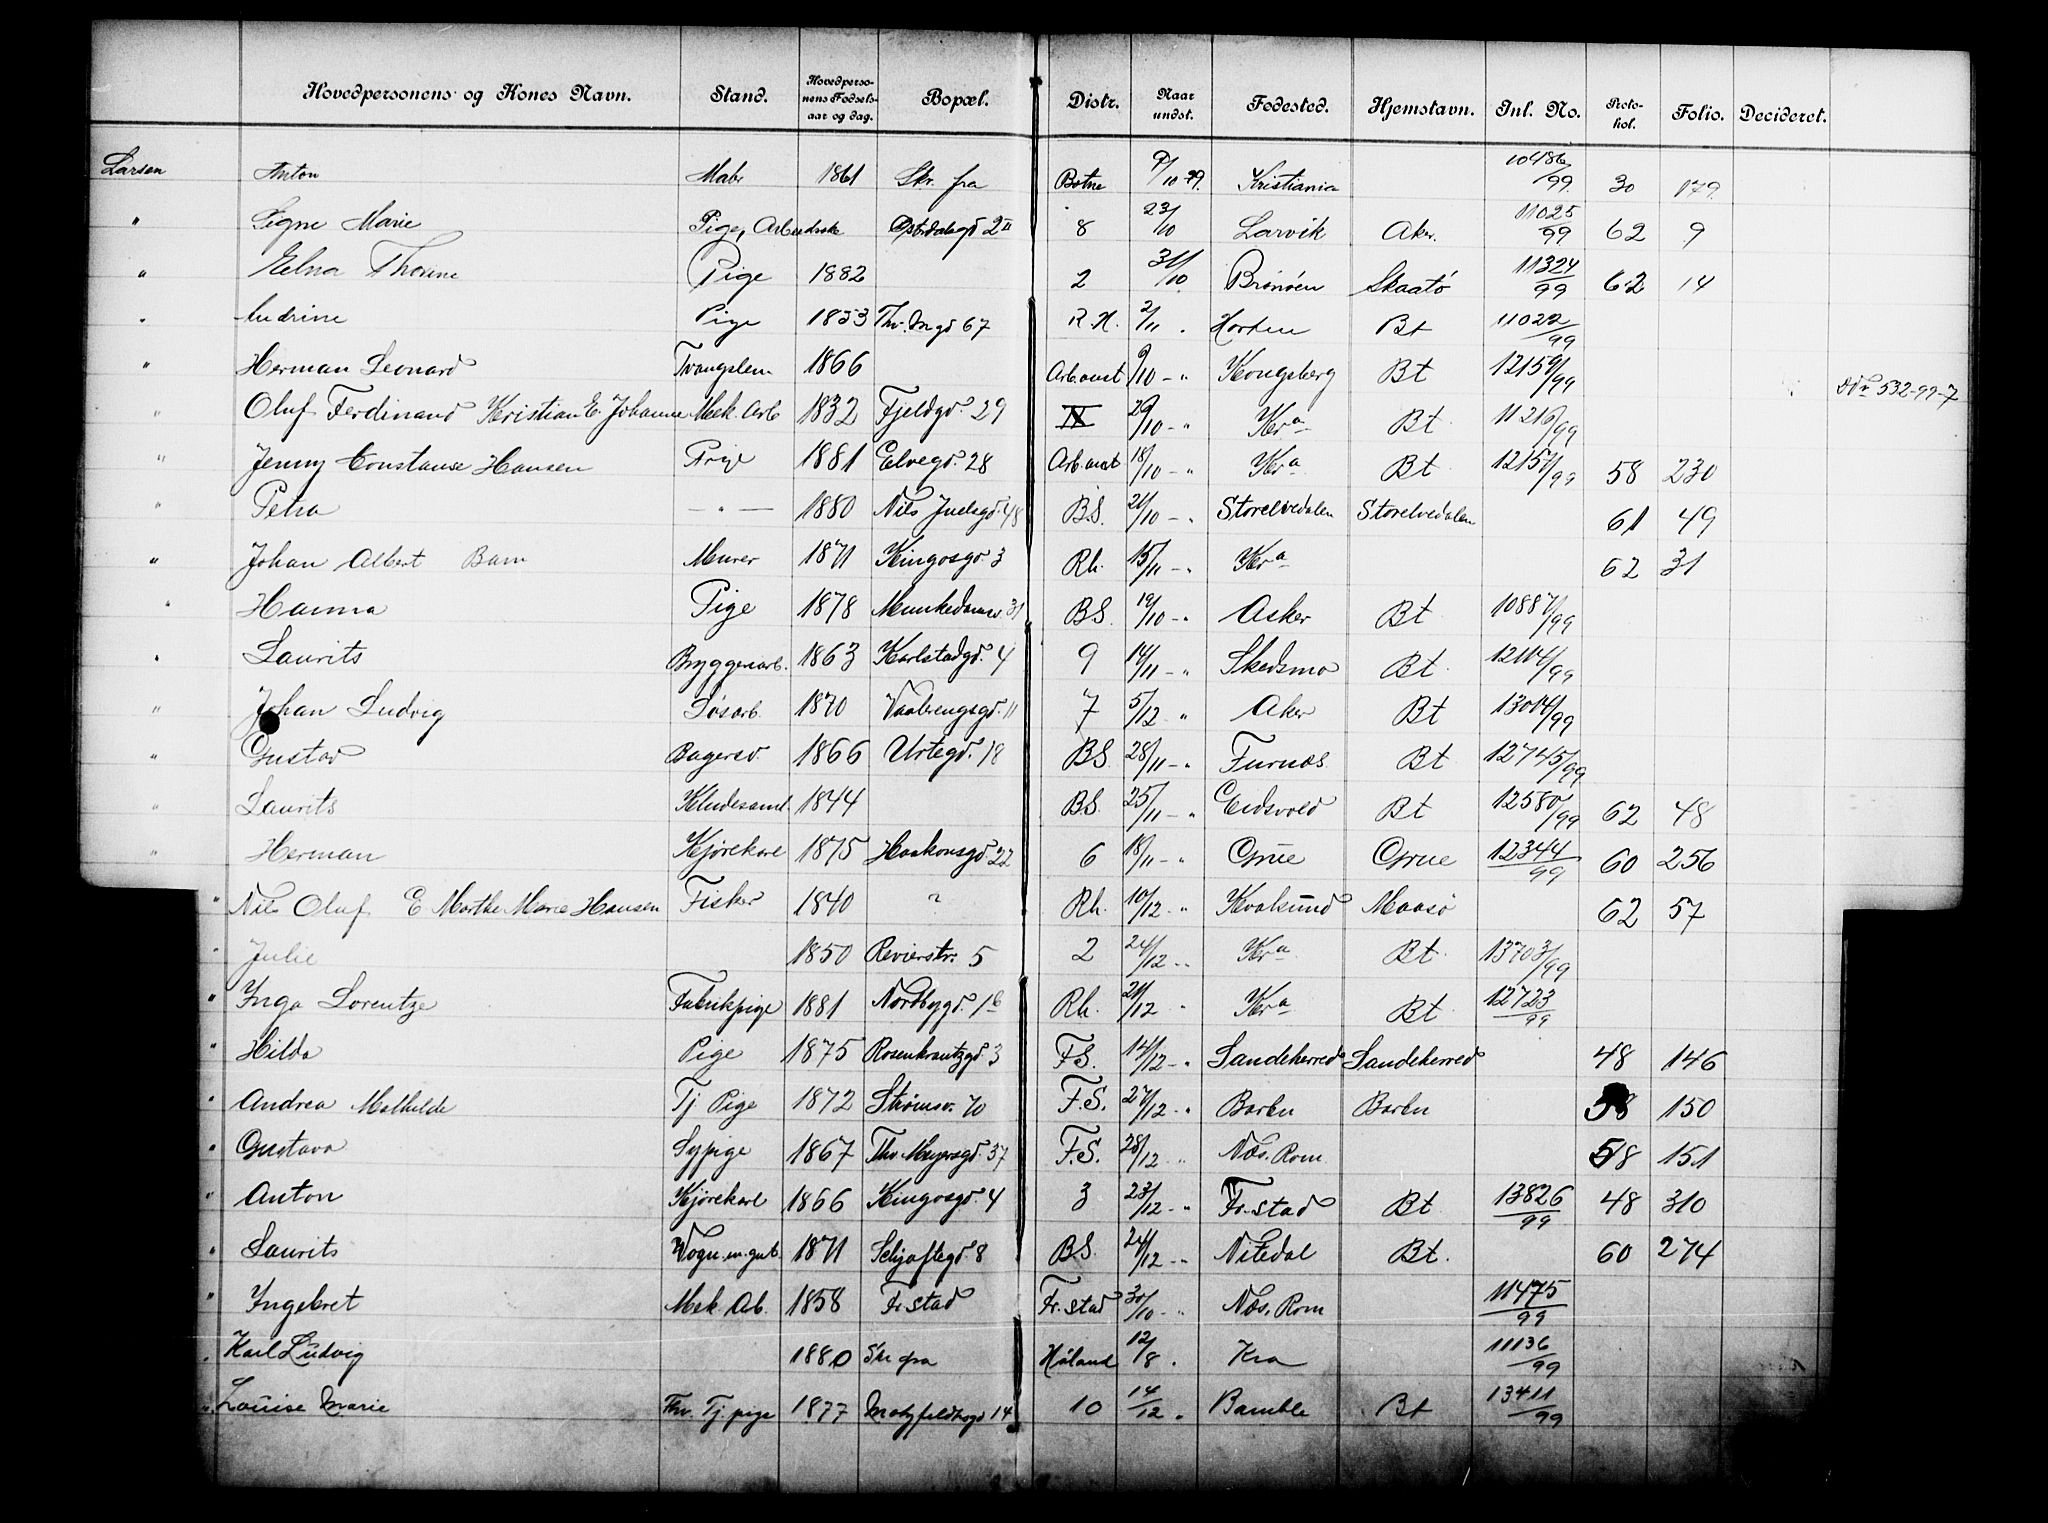 Hovedpersonens og Kones Navn. Stand. Hovedpersonens Fødselsaar og dag. Bopæl. Distr. Naar undst. Fødested. Hjemstavn. Inl. No. Protokol. Folio. Decideret.
Larsen Anton Matr 1861 Skr. fra Botne 9/10 99. Kristiania 10486/99. 30 179.
" Signe Marie Pige, Arbeiderske 2 II 8 23/10 Larvik Aker. 11025/99 62 9
" Elna Pige 1882 2 31/10. Brønøen Skaatø 11324/99 62 14
" Andrine Pige 1853 Thv. Mgd 67 R.H. 2/11 . Horten Bt 11022/99
" Herman Leonard Tvangslem 1866 Arb.anst 9/10 - " Kongsberg Bt 12159/99
" Oluf Ferdinand Kristian E. Johanne Mek Arb 1832 Fjeldgd. 29 29/10 - " Kra Bt 11216/99 532-99-7
" Jenny Constanse Hansen Pige 1881 Elvegd. 28 Arb.anst 18/10 - " Kra Bt 12157/99 58 230
" Petra — " — 1880 Nils Juelsgd. 48 B.S. 21/10 - " Storelvedalen Storelvedalen 61 49
" Johan Albert Barn Murer 1871 Kingosgd. 3 Rh. 15/11 - " Kra 62 31
" Hanna Pige 1878 Munkedamsv 31 B.S. 19/10 - " Asker Bt 10887/99
" Laurits Bryggeriarb. 1863 Karlstadgd. 4 9 14/11 - " Skedsmo Bt. 12114/99
" Johan Ludvig Løsarb. 1870 Vaalerengsgd. 11 7 5/12 " Aker Bt 13014/99
" Gustav Bagersv. 1866 Urtegd. 18 B.S. 28/11 - " Furnæs Bt 12745/99
" Laurits Kludesaml. 1844 B.S. 25/11 - " Eidsvold Bt 12580/99 62 48
" Herman Kjørekarl 1875 Haakonsgd 22 6 18/11 - " Grue Grue 12344/99 60 256
" Nils Oluf E Marthe Marie Hansen Fisker 1840 ? Rh. 10/12 - " Kvalsund Maasø 62 57
" Julie 1850 Revierstr. 5 2 24/12 - " Kra Bt. 13703/99
" Inga Lorentze Fabrikpige 1881 Nordbygd. 1b Rh. 21/12 " Kra Bt 12723/99
" Hilda Pige 1875 Rosenkrantzgd. 3 F.S. 14/12 - " Sandeherred Sandeherred 48 146
" Andrea Mathilde Tj Pige 1872 Strømsv. 70 F.S. 27/12 - " Barbu Barbu 58 150
" Gustava Sypige 1867 Thv. Meyersgd. 37 F.S. 28/12 " Næs. Rom 58 151
" Anton Kjørekarl 1866 Kingosgd. 4 3 23/12 - " Fr.stad Bt. 13826/99 48 310
" Laurits Vogn.m.gut. 1871 Schjøftegd. 8 B.S. 24/12 - " Nitedal Bt. 60 274
" Ingebret Mek. Arb. 1858 Fr.stad Fr.stad 30/10 - " Næs. Rom 11475/99
" Karl Ludvig 1880 Skr fra Høland 12/8 . Kra 11136/99
" Louise Marie Thv. Tj. pige 1877 14 10 14/12 " Bamble Bt 13411/99